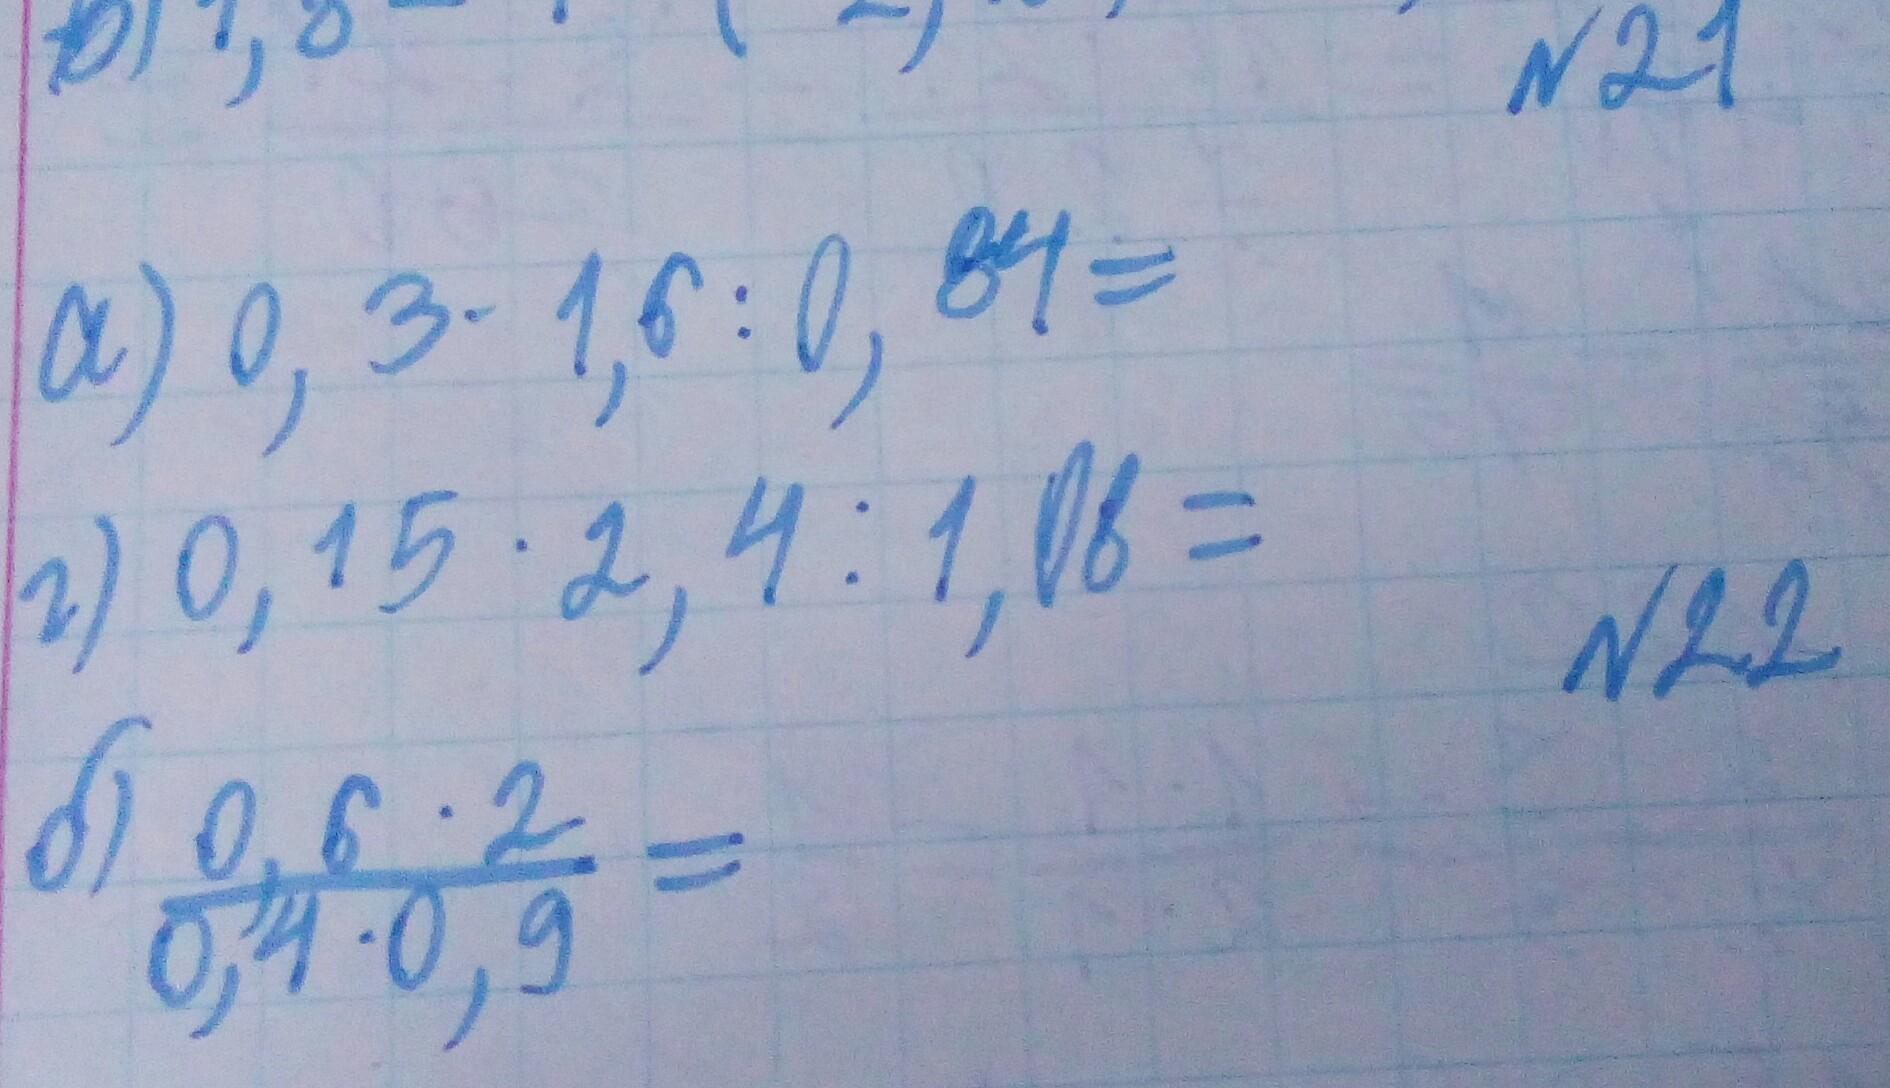 №21
а) 0,3 · 1,6 : 0,84 =
г) 0,15 · 2,4 : 1,08 =
№22
б) 0,6 · 2
0,4 · 0,9 =